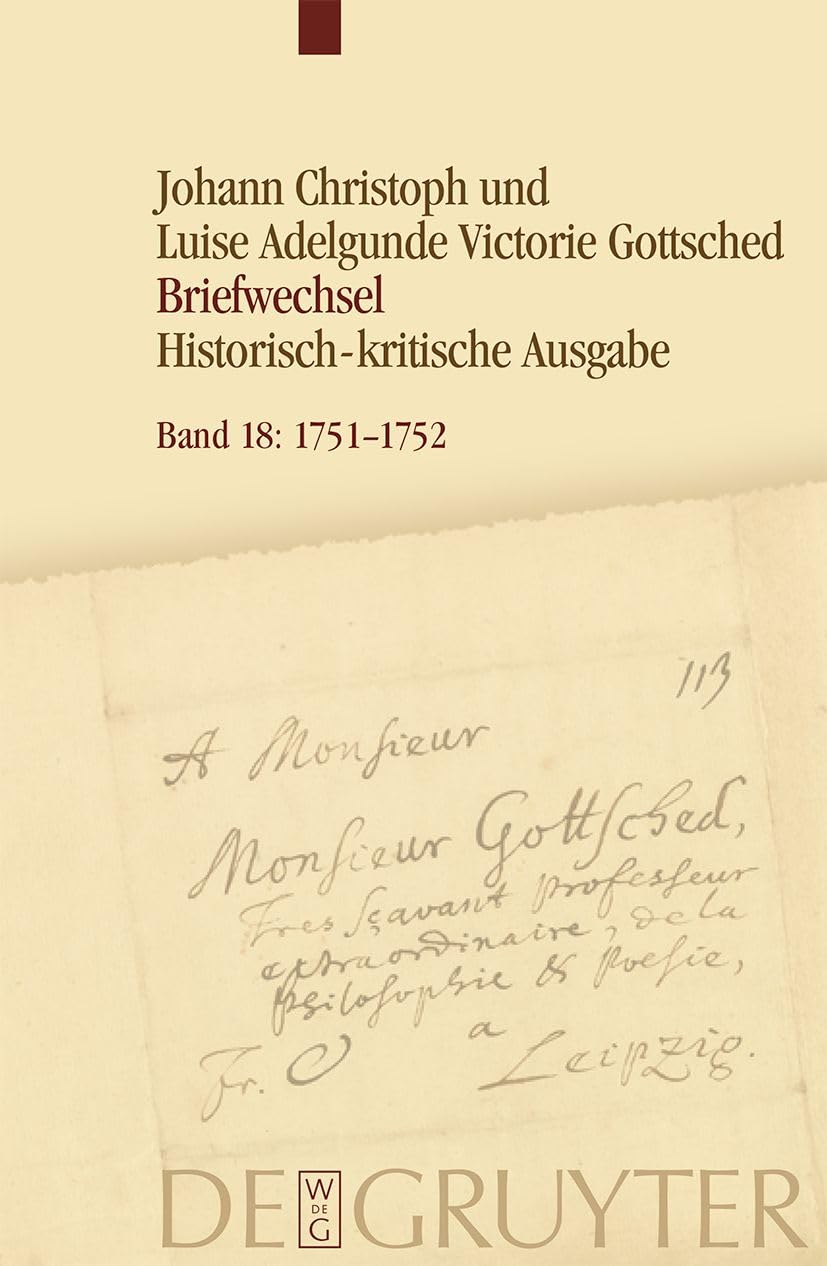 Johann Christoph und
Luise Adelgunde Victorie Gottsched
Briefwechsel
Historisch-kritische Ausgabe
Band 18: 1751–1752
113
A Monsieur
Monsieur Gottsched,
Tres sçavant professeur
extraordinaire, de la
philosophie & poesie,
a
Fr. Leipzig.
DE GRUYTER
W
DE
G